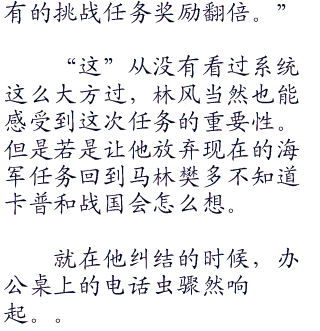 有的挑战任务奖励翻倍。”
“这”从没有看过系统
这么大方过，林风当然也能
感受到这次任务的重要性。
但是若是让他放弃现在的海
军任务回到马林樊多不知道
卡普和战国会怎么想。
就在他纠结的时候，办
公桌上的电话虫骤然响
起。。